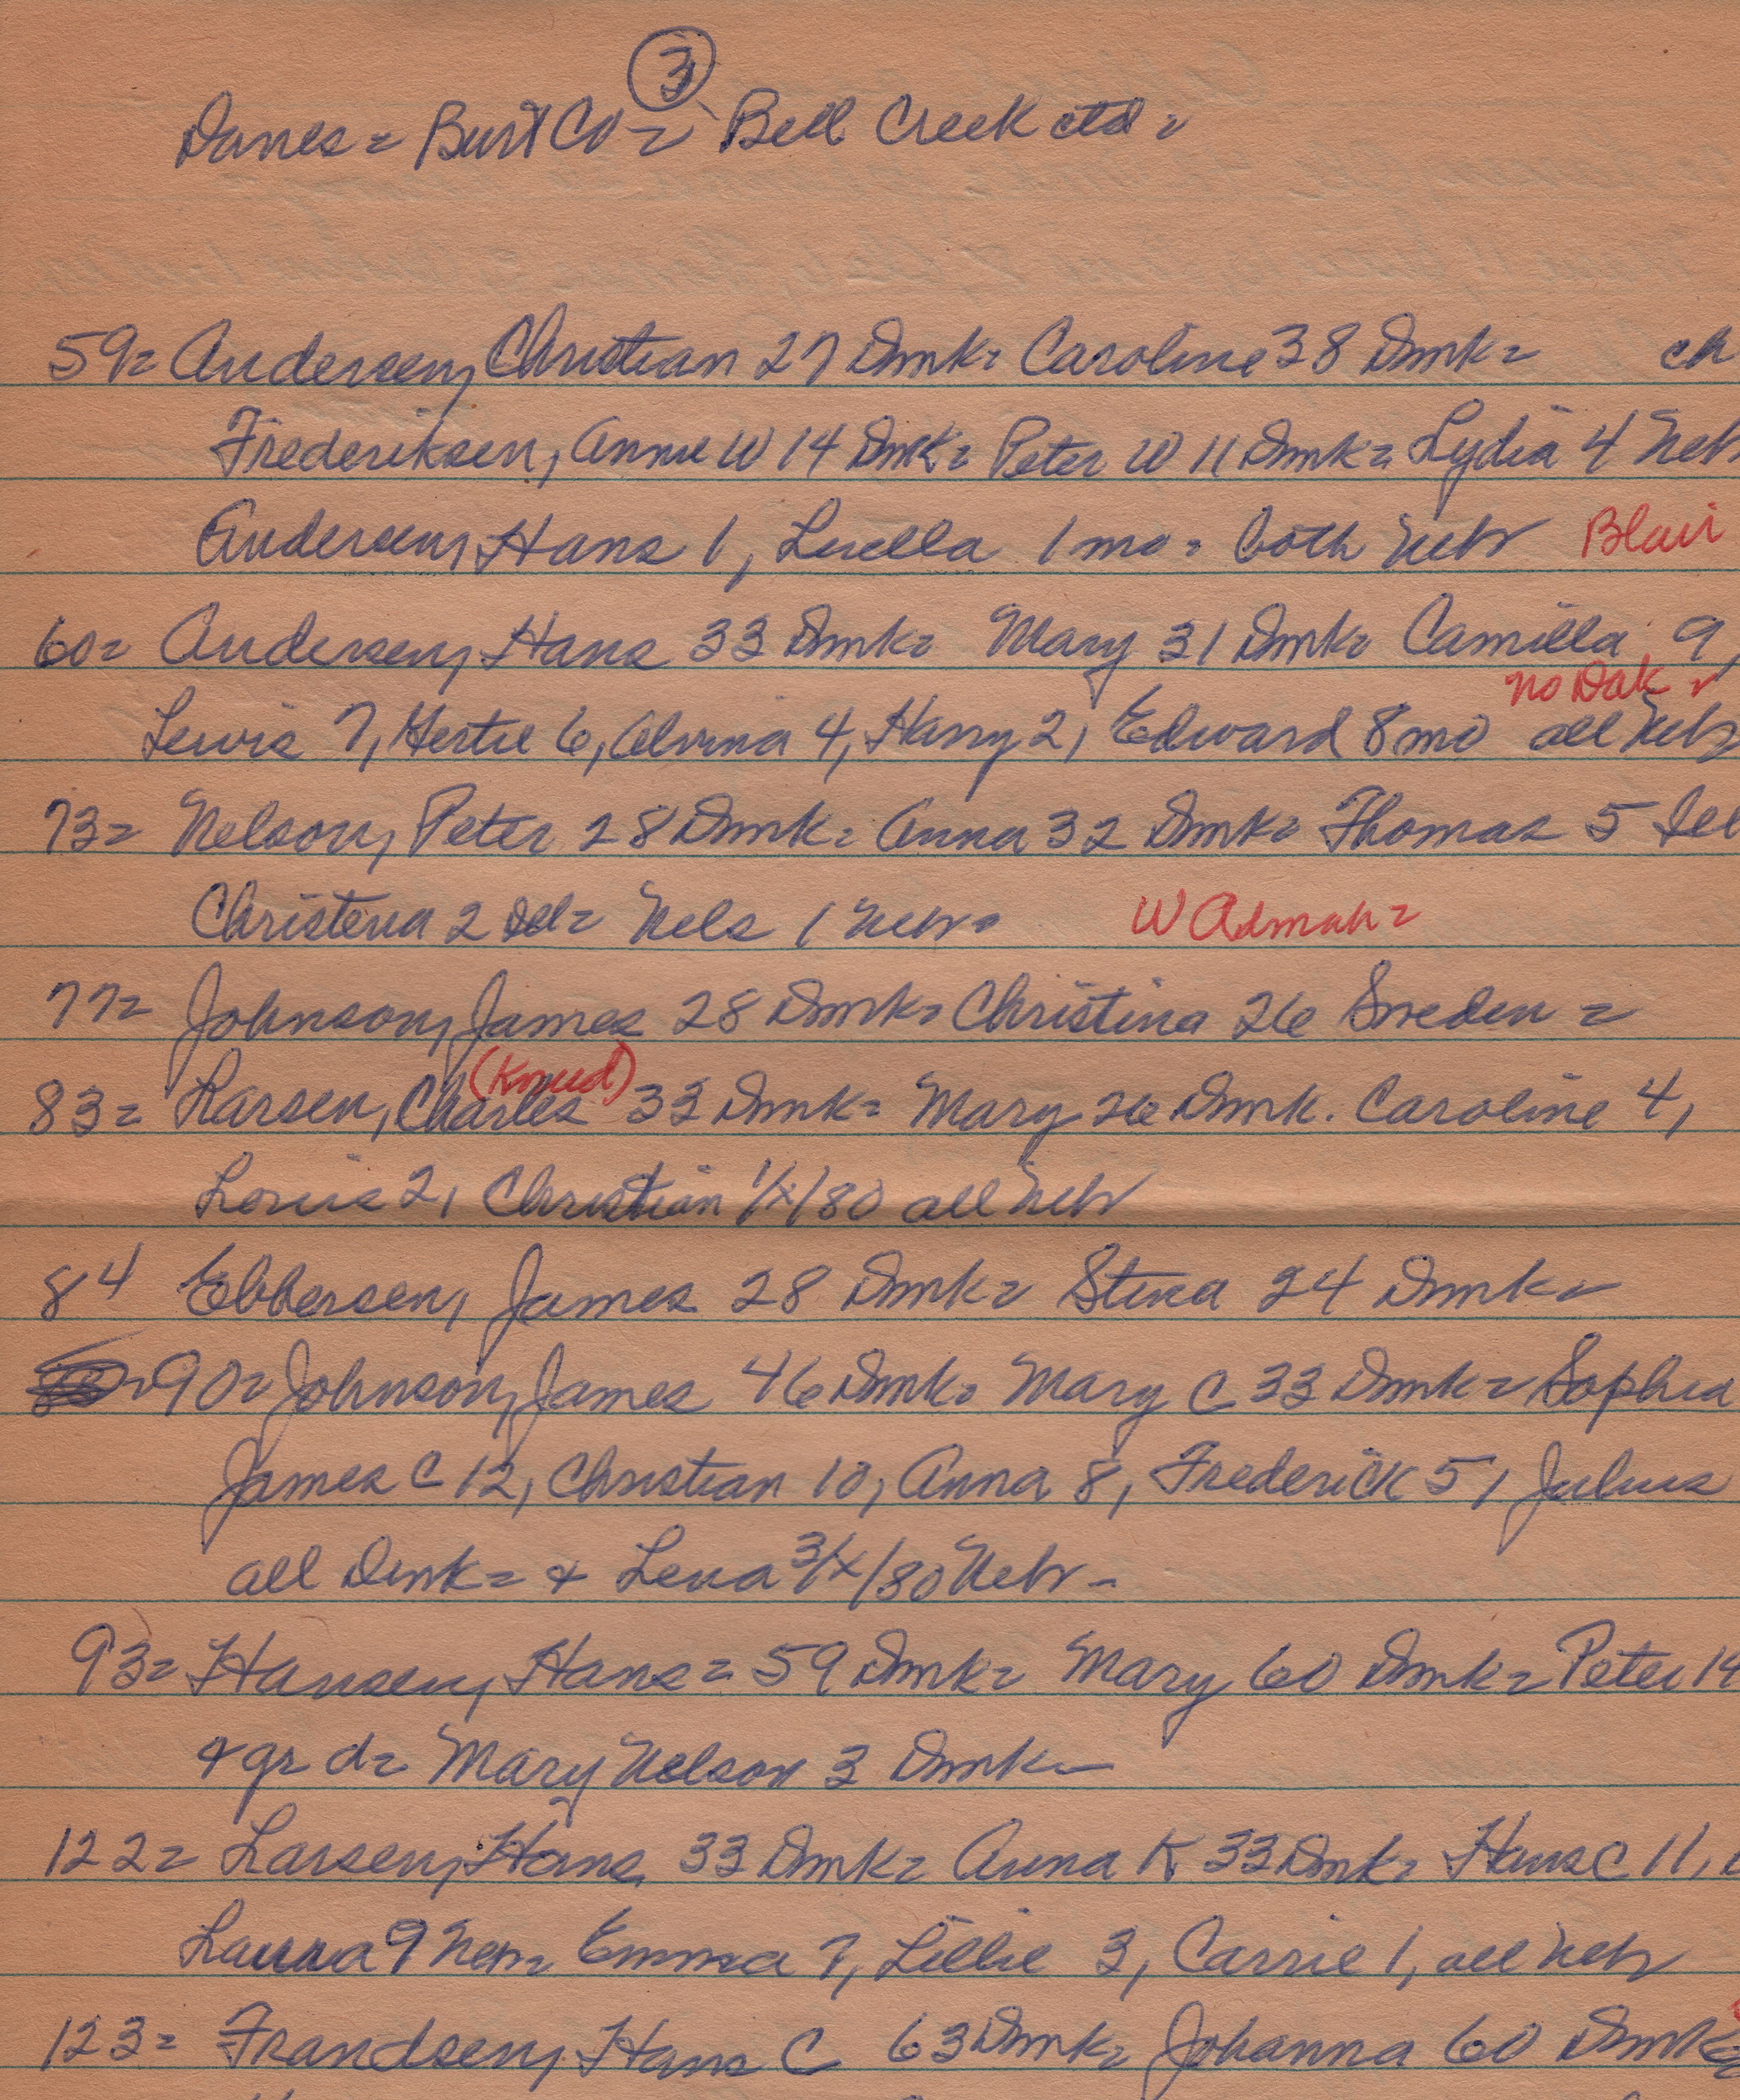 3
Danes = Burt Co = Bell Creek ctd =
59= Andersen, Christian 27 Dmk= Caroline 38 Dmk= ch
Frederiksen, Annie W 14 Dmk= Peter W 11 Dmk= Lydia 4 Neb
Andersen, Hans 1, Luella 1 mo = both Nebr Blair
60= Andersen, Hans 33 Dmk= Mary 31 Dmk= Camilla 9,
no Dak =
Lewis 7, Gertie 6, Alvina 4, Harry 2, Edward 8 mo all Nebr
73= Nelson, Peter 28 Dmk= Anna 32 Dmk= Thomas 5 Ill
Christena 2 Ill= Nels 1 Nebr= W Admah=
77= Johnson, James 28 Dmk= Christina 26 Sweden =
(Knud)
83= Larsen, Charles 33 Dmk= Mary 26 Dmk. Caroline 4,
Louis 2, Christian 1/x/80 all Nebr
84 Ebbersen, James 28 Dmk= Stena 24 Dmk=
90= Johnson, James 46 Dmk= Mary C 33 Dmk= Sophia
James C 12, Christian 10, Anna 8, Frederick 5, Julius
all Dmk= & Lena 3/x/80 Nebr -
93= Hansen, Hans = 59 Dmk= Mary 60 Dmk= Peter 14
& gr d= Mary Nelson 3 Dmk=
122= Larsen, Hans 33 Dmk= Anna K 33 Dmk= Hans C 11,
Laura 9 Emma 7, Lillie 3, Carrie 1, all Nebr
123= Frandsen, Hans C 63 Dmk= Johanna 60 Dmk